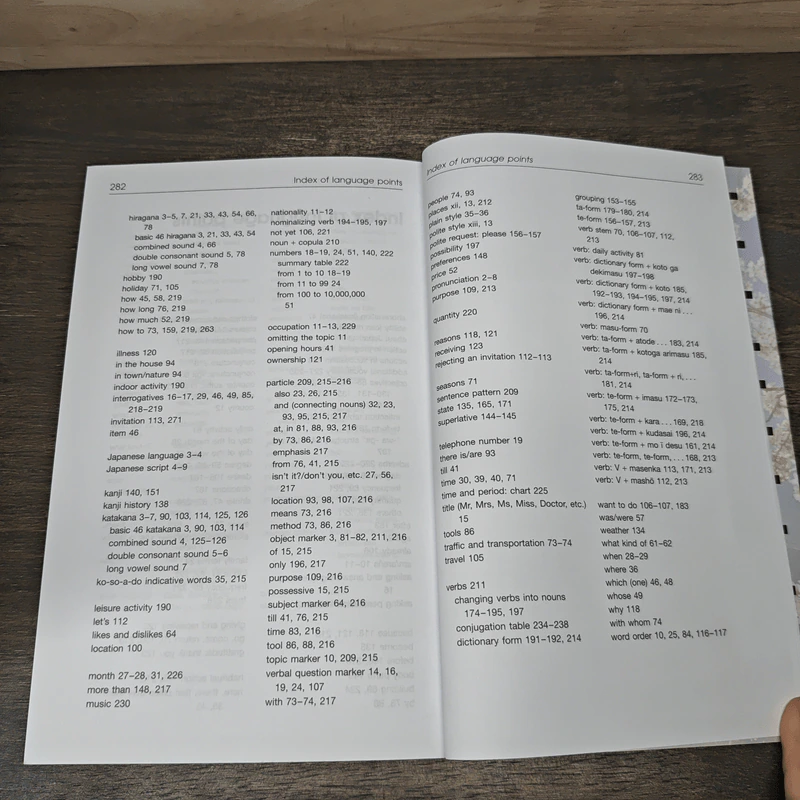 282
Index of language points
hiragana 3–5, 7, 21, 33, 43, 54, 66,
78
basic 46 hiragana 3, 21, 33, 43, 54
combined sound 4, 66
double consonant sound 5, 78
long vowel sound 7, 78
hobby 190
holiday 71, 105
how 45, 58, 219
how long 76, 219
how much 52, 219
how to 73, 159, 219, 263
illness 120
in the house 94
in town/nature 94
indoor activity 190
interrogatives 16–17, 29, 46, 49, 85,
218–219
invitation 113, 271
item 46
Japanese language 3–4
Japanese script 4–9
kanji 140, 151
kanji history 138
katakana 3–7, 90, 103, 114, 125, 126
basic 46 katakana 3, 90, 103, 114
combined sound 4, 125–126
double consonant sound 5–6
long vowel sound 7
ko-so-a-do indicative words 35, 215
leisure activity 190
let's 112
likes and dislikes 64
location 100
month 27–28, 31, 226
more than 148, 217
music 230
nationality 11–12
nominalizing verb 194–195, 197
not yet 106, 221
noun + copula 210
numbers 18–19, 24, 51, 140, 222
summary table 222
from 1 to 10 18–19
from 11 to 99 24
from 100 to 10,000,000
51
occupation 11–13, 229
omitting the topic 11
opening hours 41
ownership 121
particle 209, 215–216
also 23, 26, 215
and (connecting nouns) 32, 23,
93, 95, 215, 217
at, in 81, 88, 93, 216
by 73, 86, 216
emphasis 217
from 76, 41, 215
isn't it?/don't you, etc. 27, 56,
217
location 93, 98, 107, 216
means 73, 216
method 73, 86, 216
object marker 3, 81–82, 211, 216
of 15, 215
only 196, 217
purpose 109, 216
possessive 15, 215
subject marker 64, 216
till 41, 76, 215
time 83, 216
tool 86, 88, 216
topic marker 10, 209, 215
verbal question marker 14, 16,
19, 24, 107
with 73–74, 217
Index of language points
283
people 74, 93
places xii, 13, 212
plain style 35–36
polite style xiii, 13
polite request: please 156–157
possibility 197
preferences 148
price 52
pronunciation 2–8
purpose 109, 213
quantity 220
reasons 118, 121
receiving 123
rejecting an invitation 112–113
seasons 71
sentence pattern 209
state 135, 165, 171
superlative 144–145
telephone number 19
there is/are 93
till 41
time 30, 39, 40, 71
time and period: chart 225
title (Mr, Mrs, Ms, Miss, Doctor, etc.)
15
tools 86
traffic and transportation 73–74
travel 105
verbs 211
changing verbs into nouns
174–195, 197
conjugation table 234–238
dictionary form 191–192, 214
grouping 153–155
ta-form 179–180, 214
te-form 156–157, 213
verb stem 70, 106–107, 112,
213
verb: daily activity 81
verb: dictionary form + koto ga
dekimasu 197–198
verb: dictionary form + koto 185,
192–193, 194–195, 197, 214
verb: dictionary form + mae ni . . .
196, 214
verb: masu-form 70
verb: ta-form + atode . . . 183, 214
verb: ta-form + kotoga arimasu 185,
214
verb: ta-form+ri, ta-form + ri, . . .
181, 214
verb: te-form + imasu 172–173,
175, 214
verb: te-form + kara . . . 169, 218
verb: te-form + kudasai 196, 214
verb: te-form + mo ī desu 161, 214
verb: te-form, te-form, . . . 168, 213
verb: V + masenka 113, 171, 213
verb: V + mashō 112, 213
want to do 106–107, 183
was/were 57
weather 134
what kind of 61–62
when 28–29
where 36
which (one) 46, 48
whose 49
why 118
with whom 74
word order 10, 25, 84, 116–117